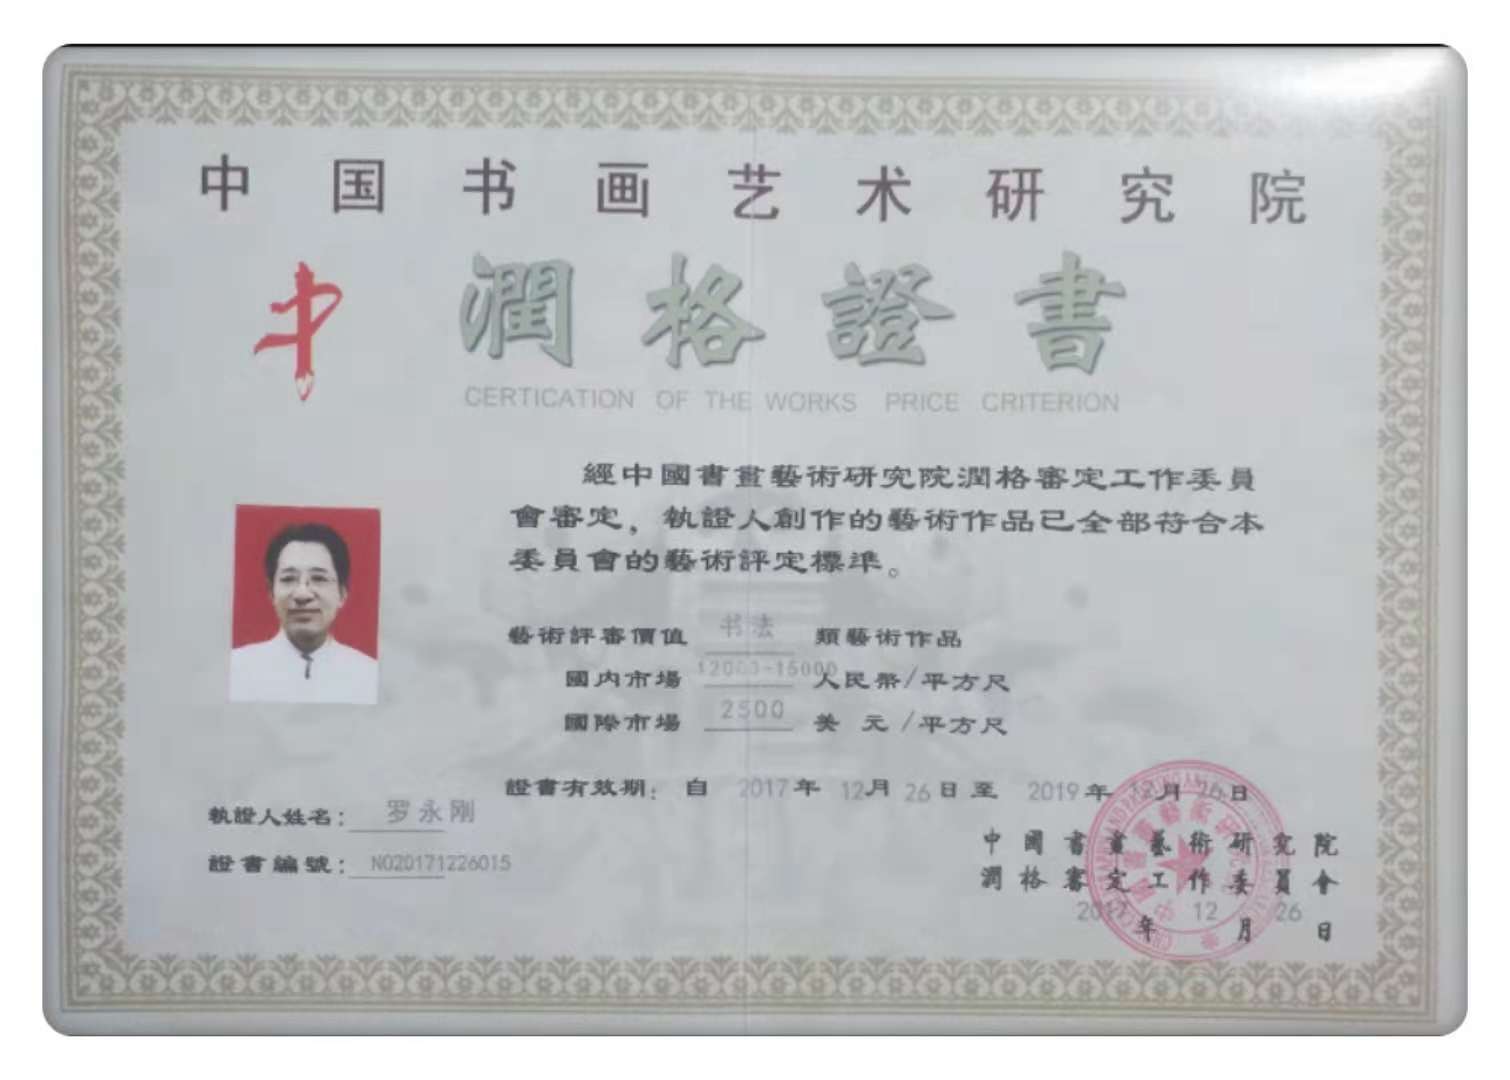 中国书画艺术研究院
潤格證書
CERTICATION OF THE WORKS PRICE CRITERION
經中國書畫藝術研究院潤格審定工作委員
會審定，執證人創作的藝術作品已全部符合本
委員會的藝術評定標準。
藝術評審價值 书法 類藝術作品
國内市場 12000-15000 人民幣/平方尺
國際市場 2500 美 元/平方尺
證書有效期：自 2017年 12月 26日至 2019年 12月 26日
執證人姓名：罗永刚
證書編號：NO20171226015
中國書畫藝術研究院
潤格審定工作委員會
2017年 12月 26日